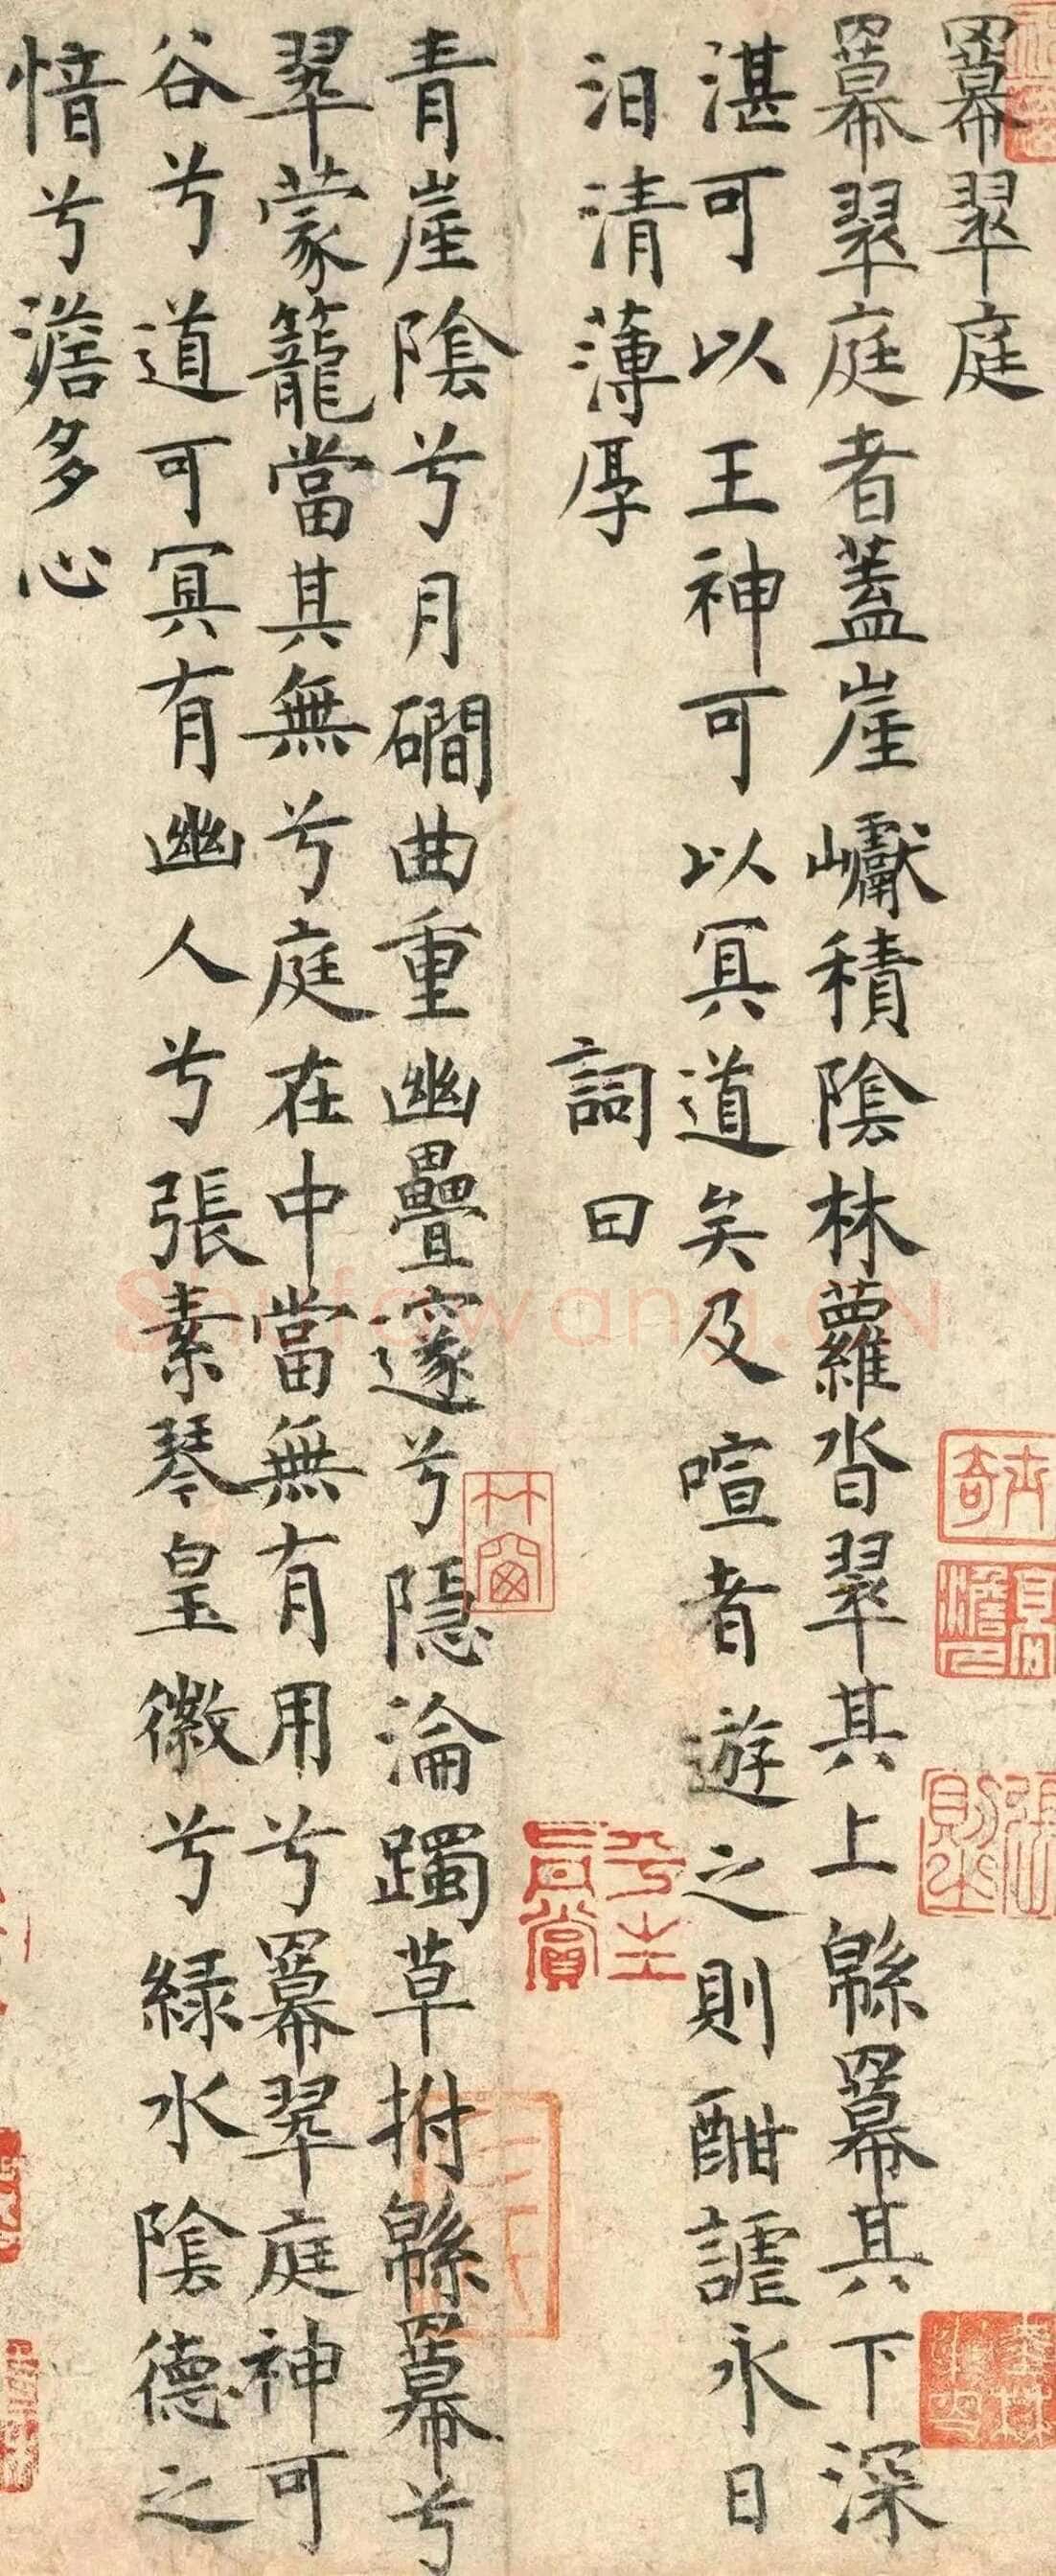 羃翠庭
羃翠庭者蓋崖巘積陰林蘿沓翠其上緜羃其下深
湛可以王神可以冥道矣及喧者遊之則酣謔永日
汩清薄厚
詞曰
青崖陰兮月磵曲重幽疊邃兮隱淪躅草拊緜羃兮
翠蒙籠當其無兮庭在中當無有用兮羃翠庭神可
谷兮道可冥有幽人兮張素琴皇徽兮綠水陰德之
愔兮澹多心